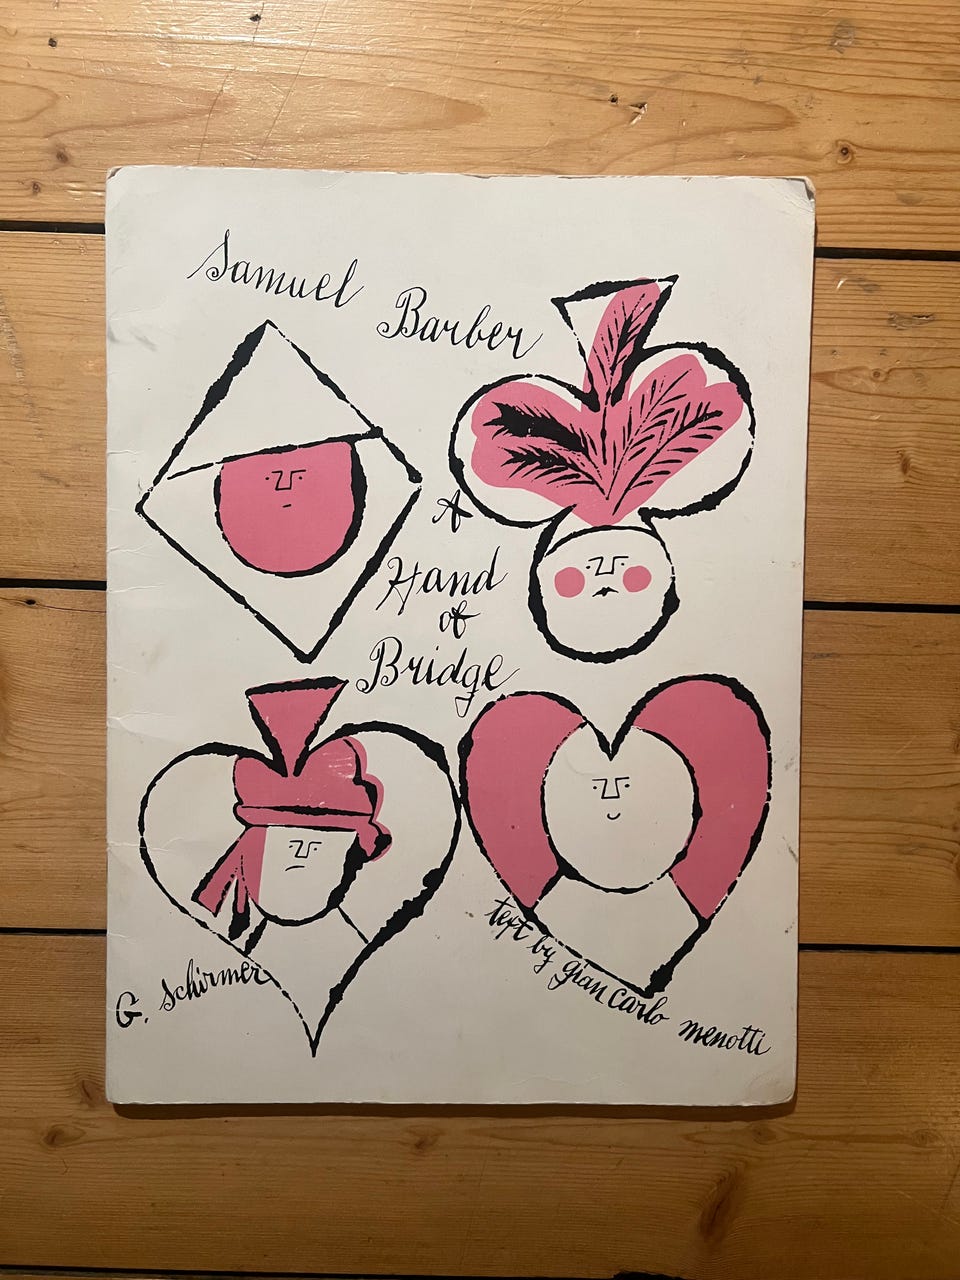 Samuel Barber
A
Hand
of
Bridge
text by gian carlo menotti
G. Schirmer